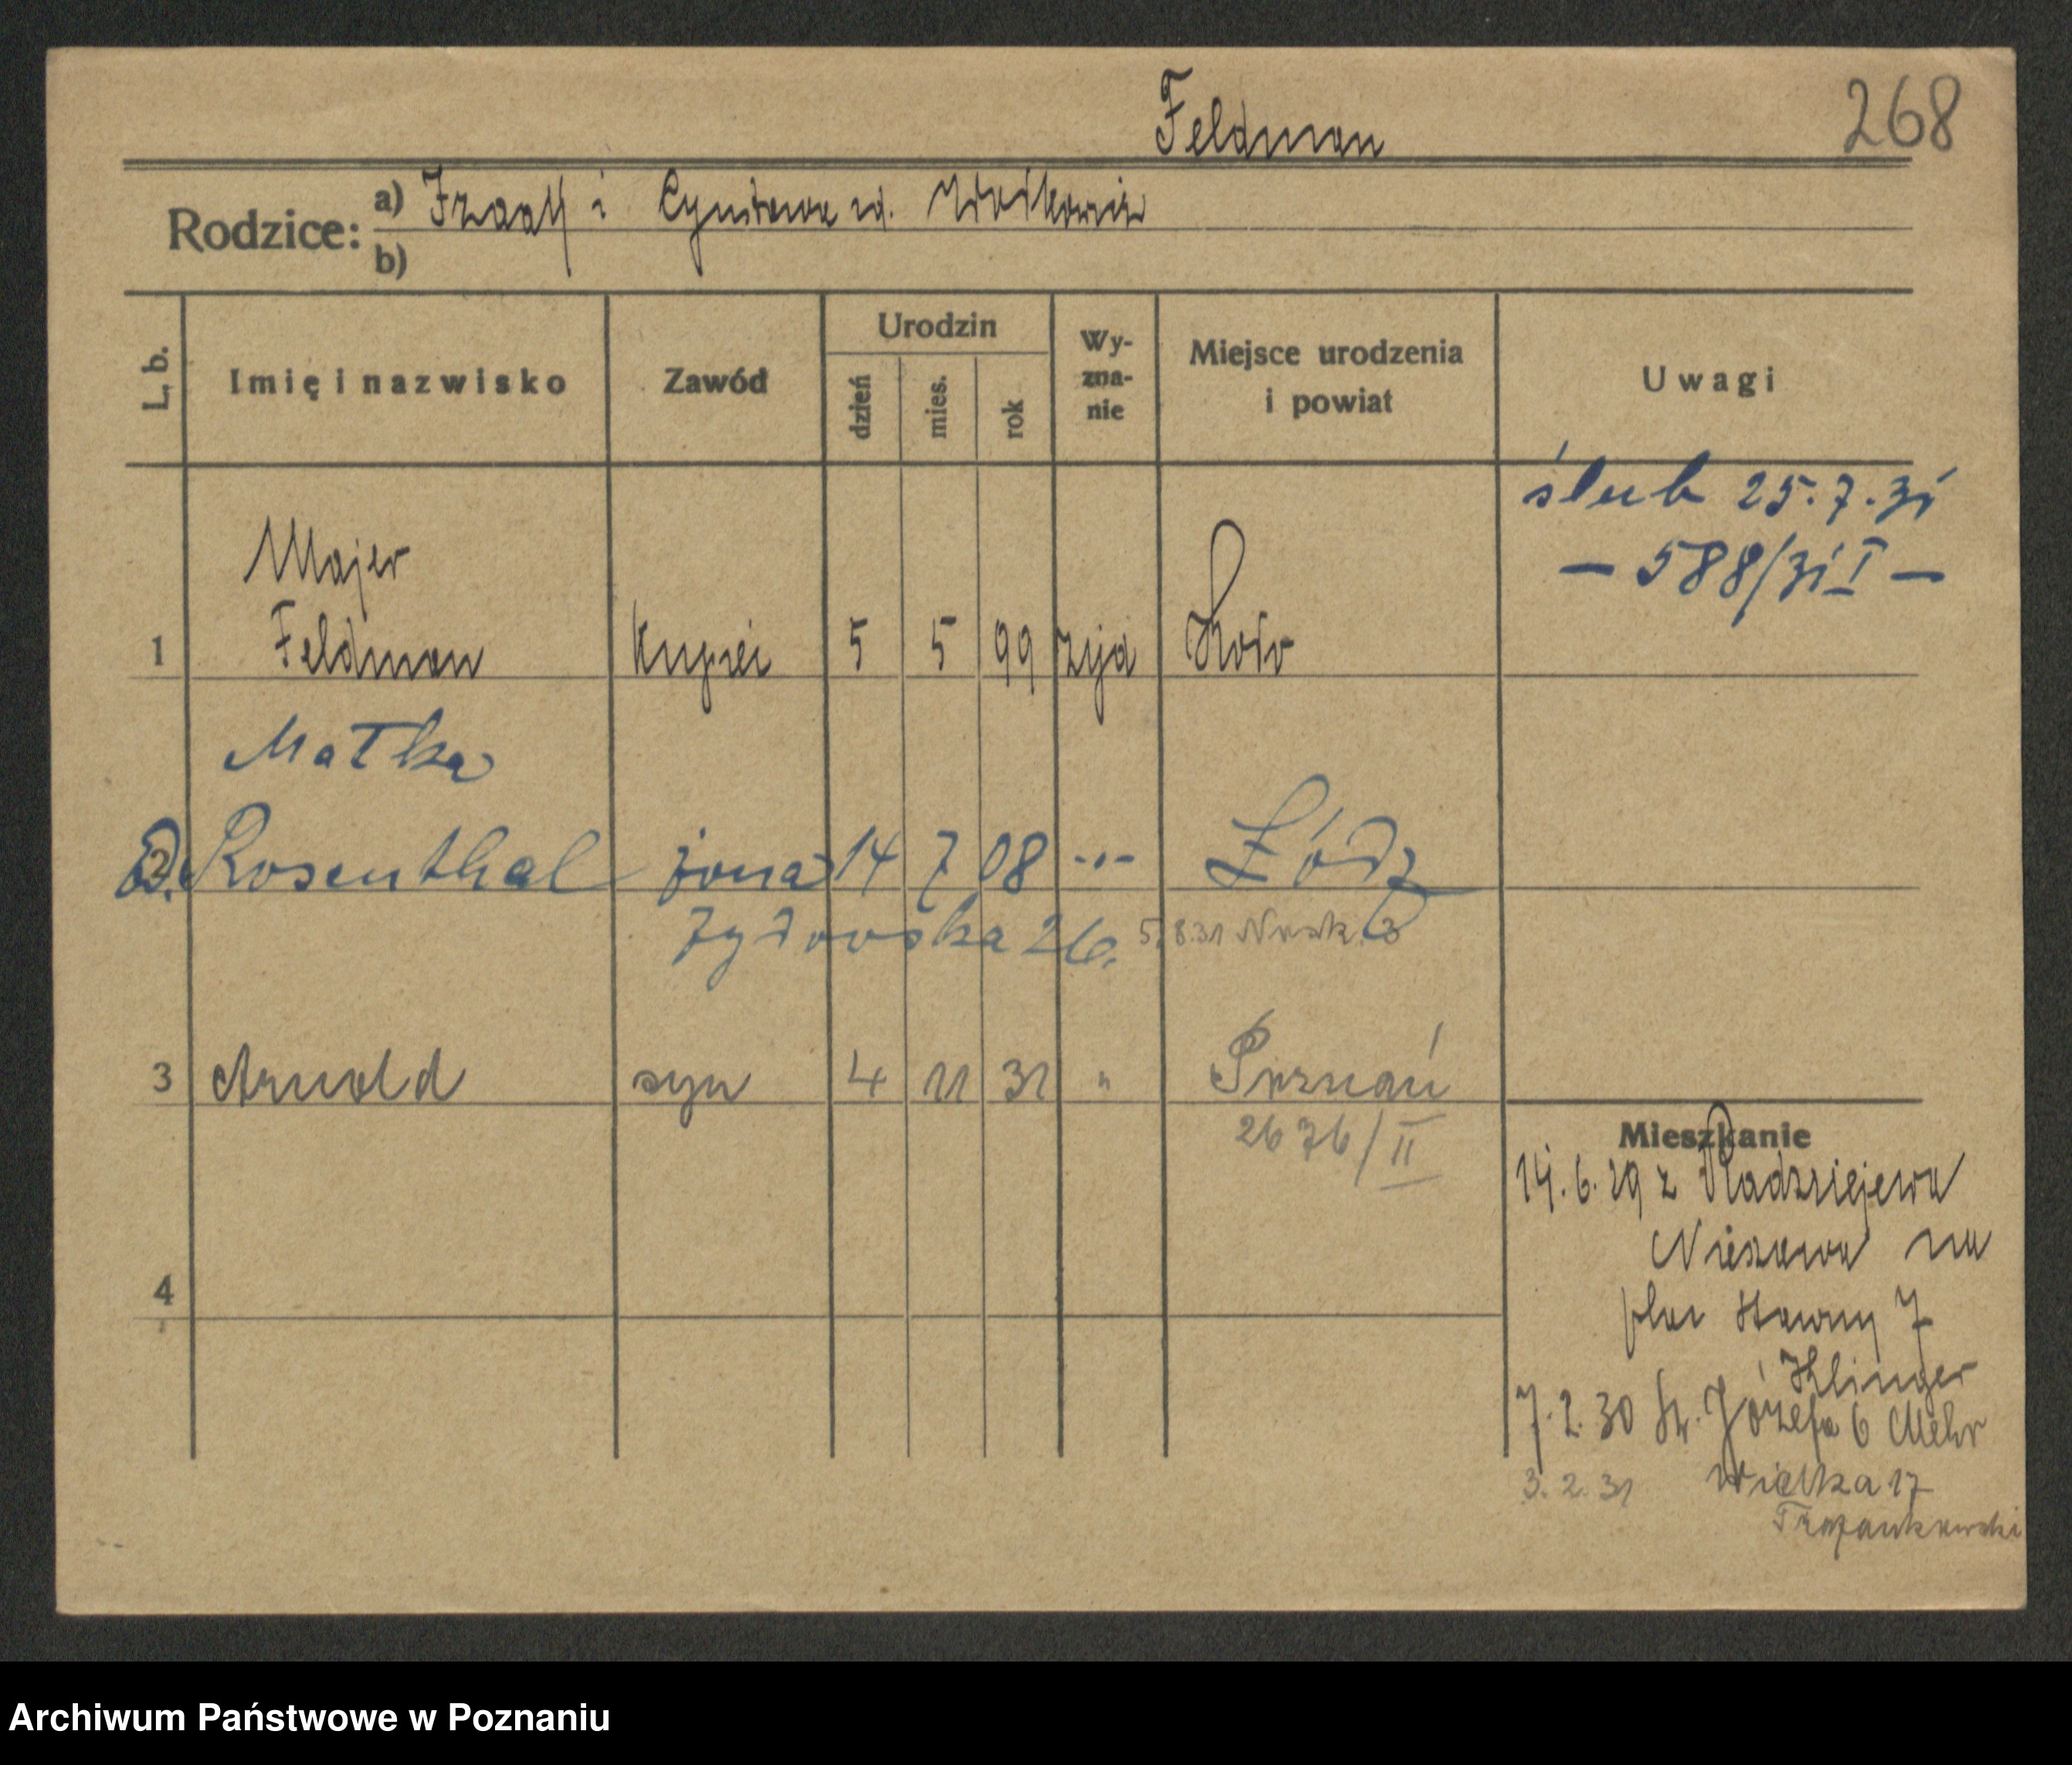 Feldman
268
Rodzice: a) Izaak i
b)
L. b. Imię i nazwisko Zawód Urodzin dzień mies. rok Wyznanie Miejsce urodzenia i powiat Uwagi
ślub 25.7.31
— 588/31 I —
Majer
1 Feldman Kupiec 5 5 99 Koło
Matka
2. Rosenthal żona 14 7 08 -"- Łódź
Żydowska 26. 5.8.31
3 Arnold syn 4 11 31 " Poznań
2676/II
Mieszkanie
14.6.29 z Radziejewa
Nieszawa na
plac Sławny 7
Klinger
7.2.30 św. Józefa 6 Mehr
3.2.31 Wielka 17
4
Archiwum Państwowe w Poznaniu